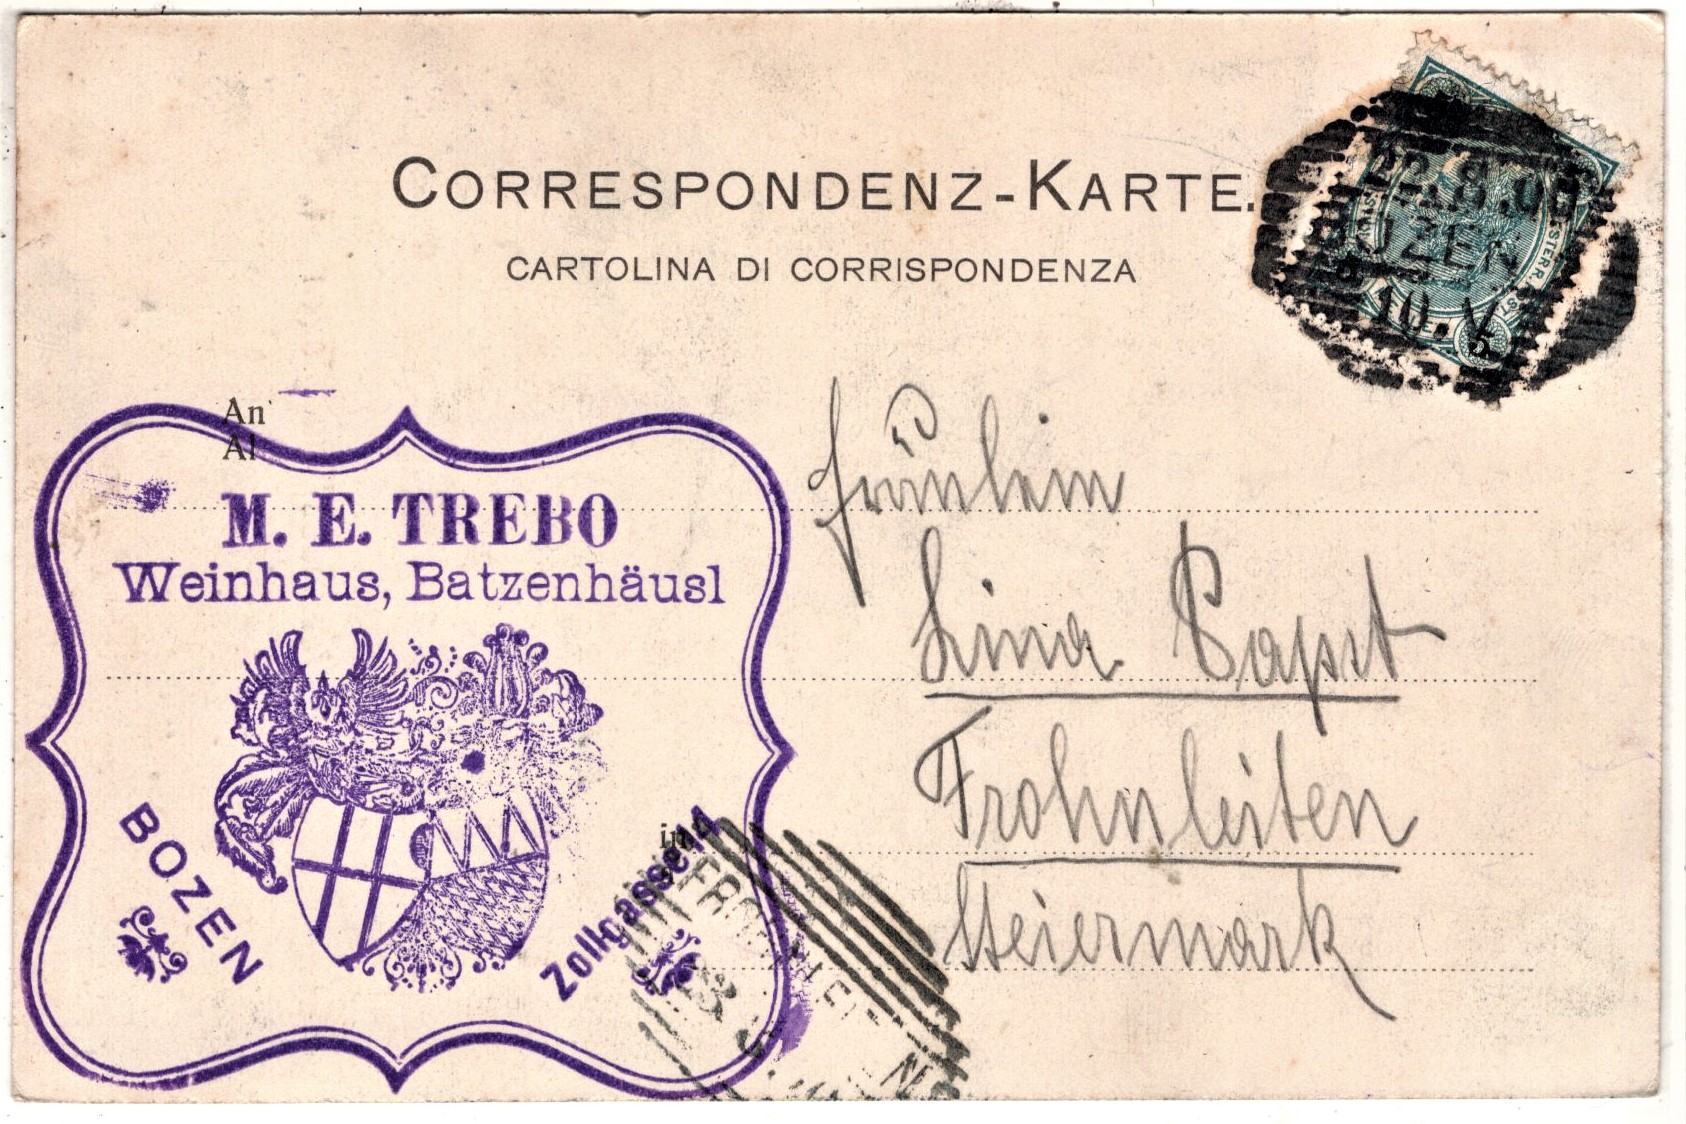 CORRESPONDENZ-KARTE.
CARTOLINA DI CORRISPONDENZA
22.8.00
BOZEN
10.V
5
An
Al
M. E. TREBO
Weinhaus, Batzenhäusl
BOZEN
Zollgasse
in
Fräulein
Lina Papst
Frohnleiten
Steiermark
FROHNLEITEN